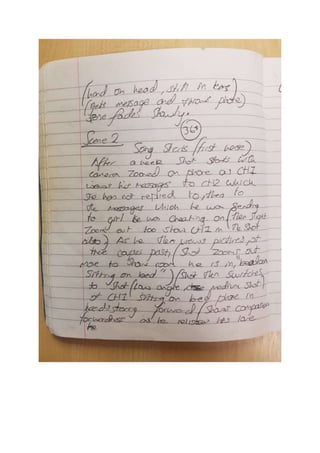 (hand on head, still in tears)
(gets message and throws phone)
Scene fades slowly.
36s
Scene 2
Song starts (first verse)
After a week shot starts with
camera zoomed on phone as CH1
views his messages to CH2 which
She has not replied to, then to
the messages which he was sending
to girl he was cheating on (Then slight
Zoom out too show CH1 in the shot
also) As he then views pictures, of
the couples past, (Shot zooms out
more to show room he is in,
Sitting on bed") (shot then switches
to shot (Low angle, medium shot)
of CH1 sitting on bed phone in
hand staring forward (shows comparison
forwardness as he his love
he